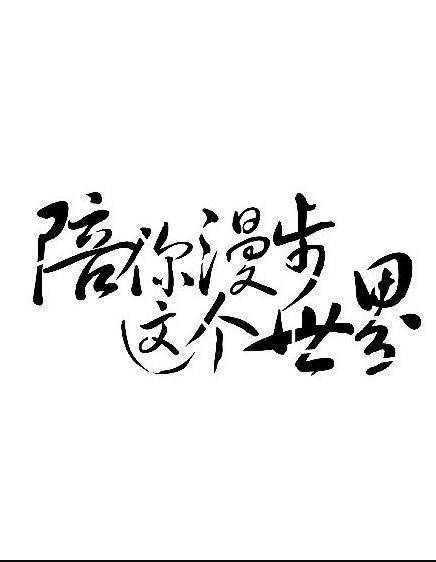 陪你漫步
这个世界